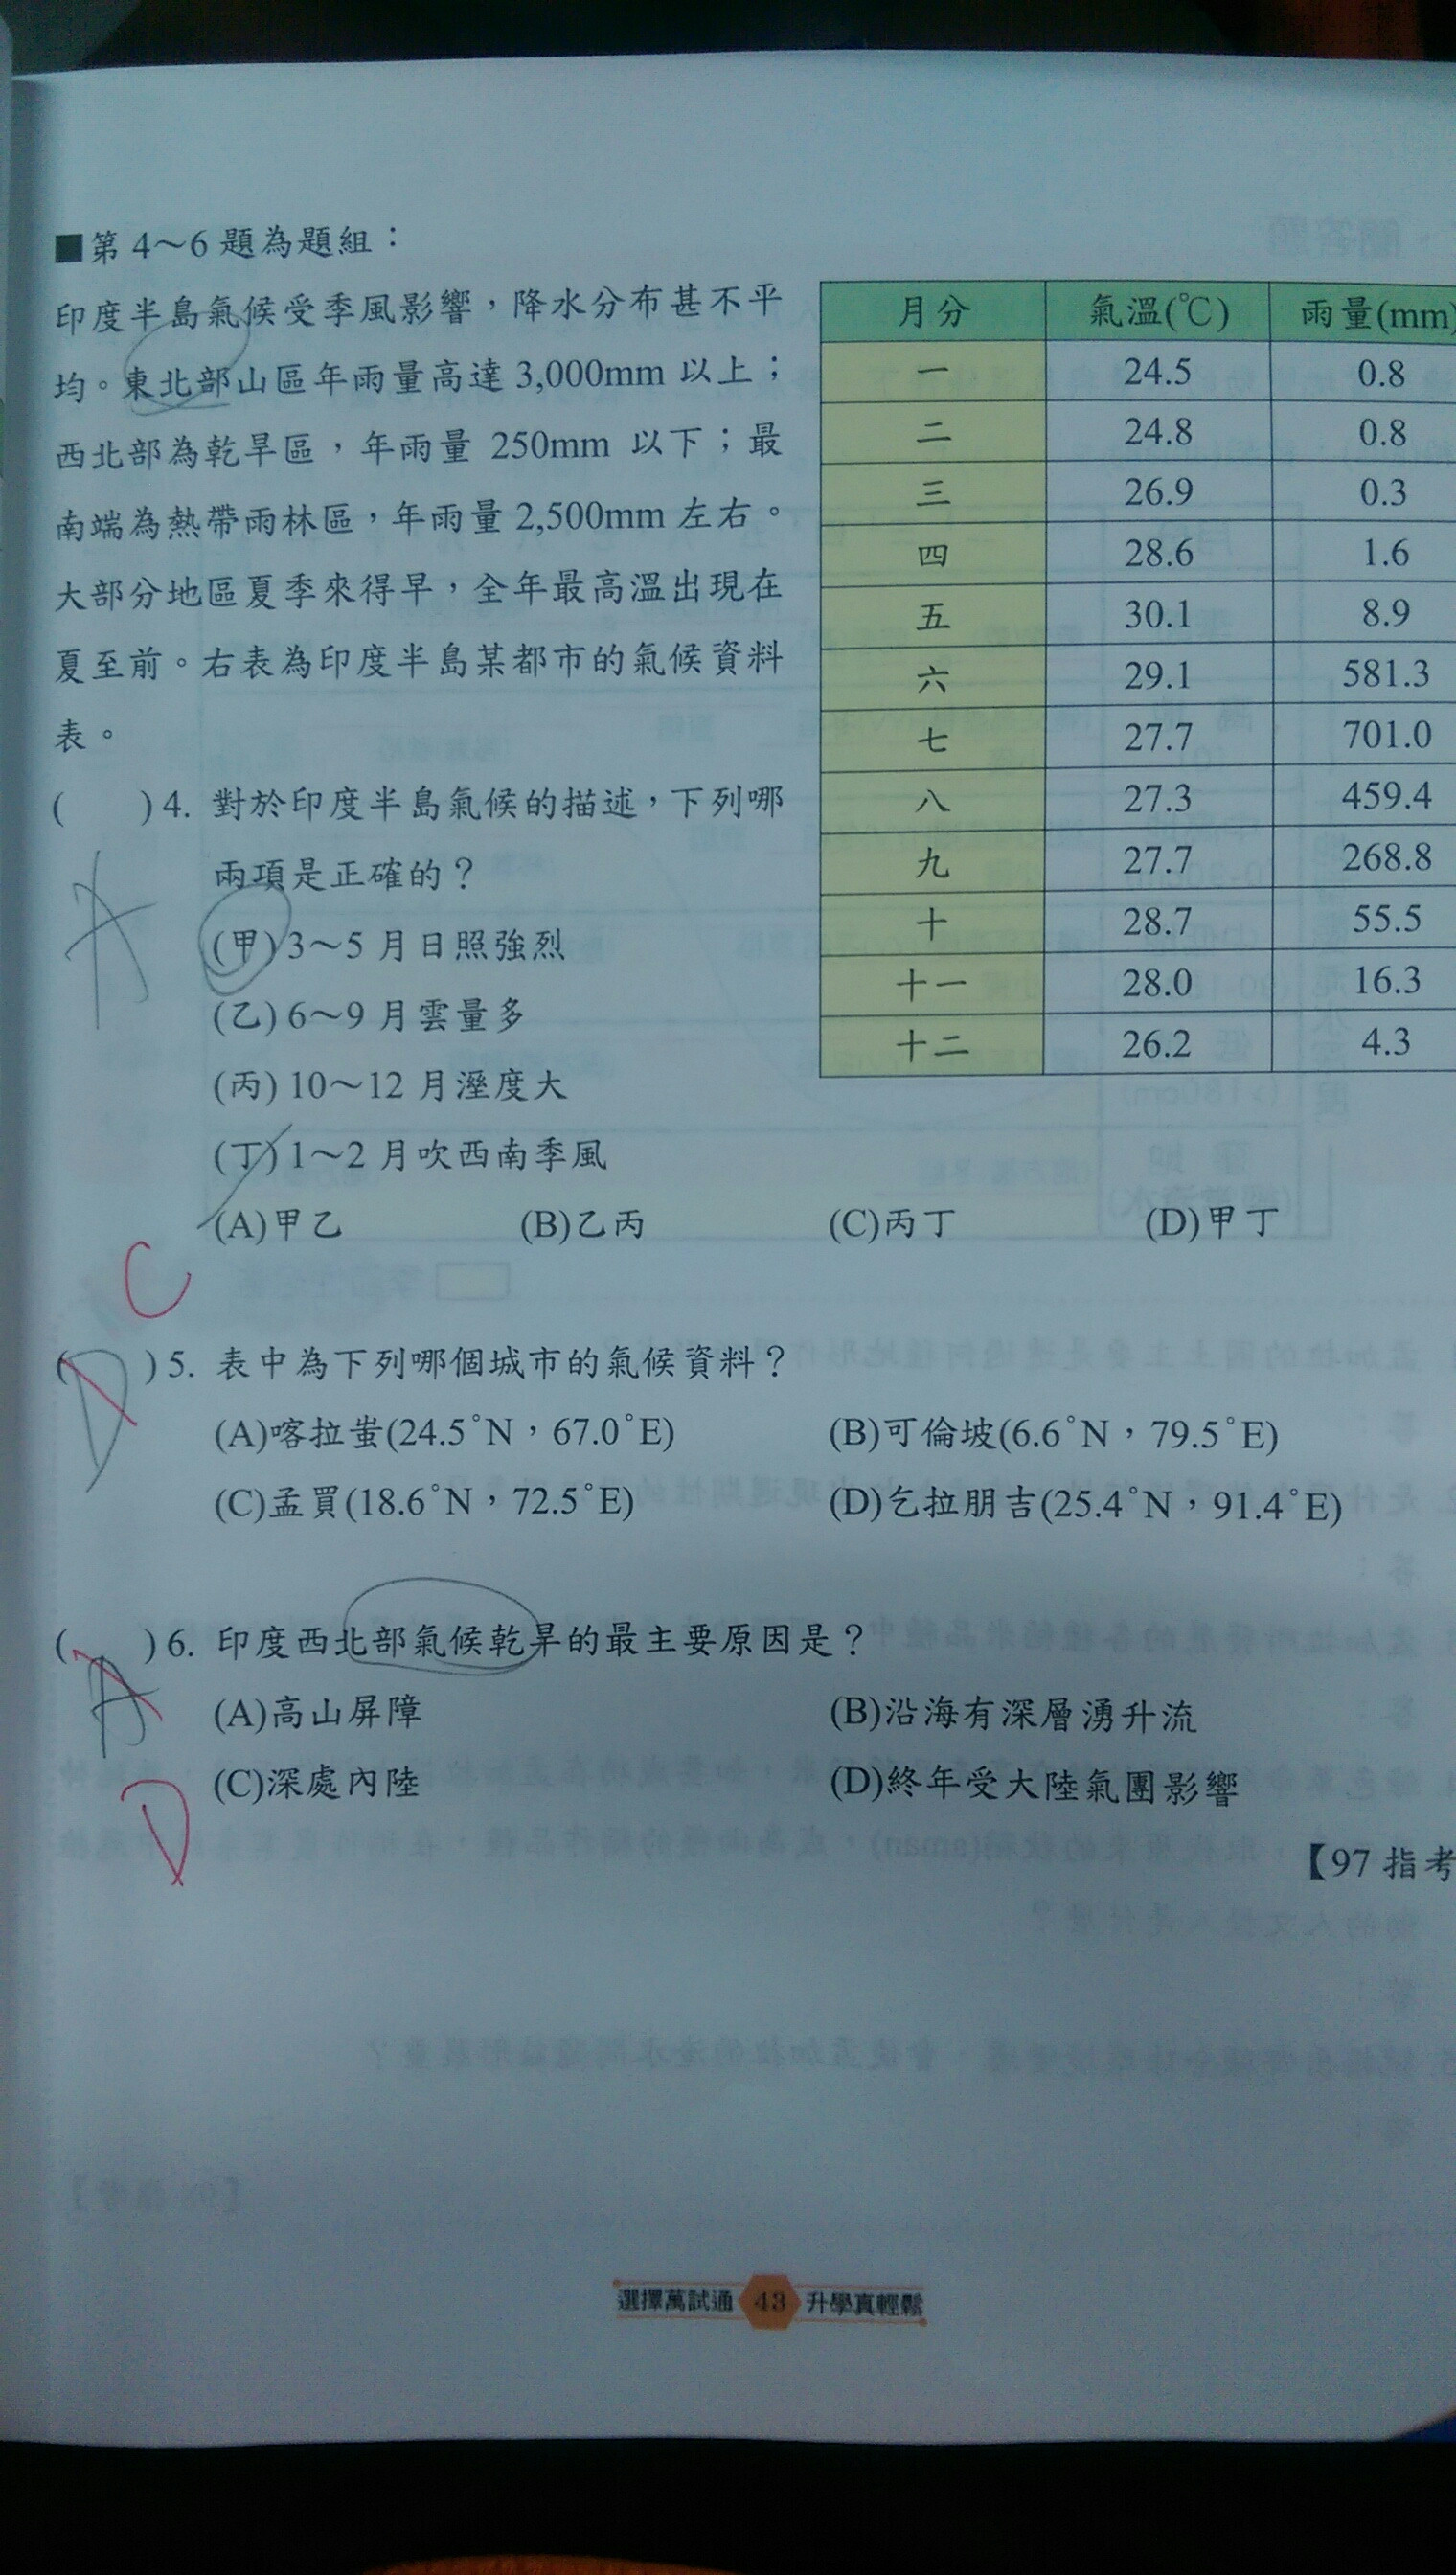 ■第 4～6 題為題組：
印度半島氣候受季風影響，降水分布甚不平
均。東北部山區年雨量高達 3,000mm 以上；
西北部為乾旱區，年雨量 250mm 以下；最
南端為熱帶雨林區，年雨量 2,500mm 左右。
大部分地區夏季來得早，全年最高溫出現在
夏至前。右表為印度半島某都市的氣候資料
表。
月分 氣溫(℃) 雨量(mm)
一 24.5 0.8
二 24.8 0.8
三 26.9 0.3
四 28.6 1.6
五 30.1 8.9
六 29.1 581.3
七 27.7 701.0
八 27.3 459.4
九 27.7 268.8
十 28.7 55.5
十一 28.0 16.3
十二 26.2 4.3
( ) 4. 對於印度半島氣候的描述，下列哪
兩項是正確的？
A
(甲) 3～5 月日照強烈
(乙) 6～9 月雲量多
(丙) 10～12 月溼度大
(丁) 1～2 月吹西南季風
(A)甲乙 (B)乙丙 (C)丙丁 (D)甲丁
C
( D ) 5. 表中為下列哪個城市的氣候資料？
(A)喀拉蚩(24.5°N，67.0°E) (B)可倫坡(6.6°N，79.5°E)
(C)孟買(18.6°N，72.5°E) (D)乞拉朋吉(25.4°N，91.4°E)
( A ) 6. 印度西北部氣候乾旱的最主要原因是？
(A)高山屏障 (B)沿海有深層湧升流
(C)深處內陸 (D)終年受大陸氣團影響
D
【97 指考
選擇萬試通 43 升學真輕鬆